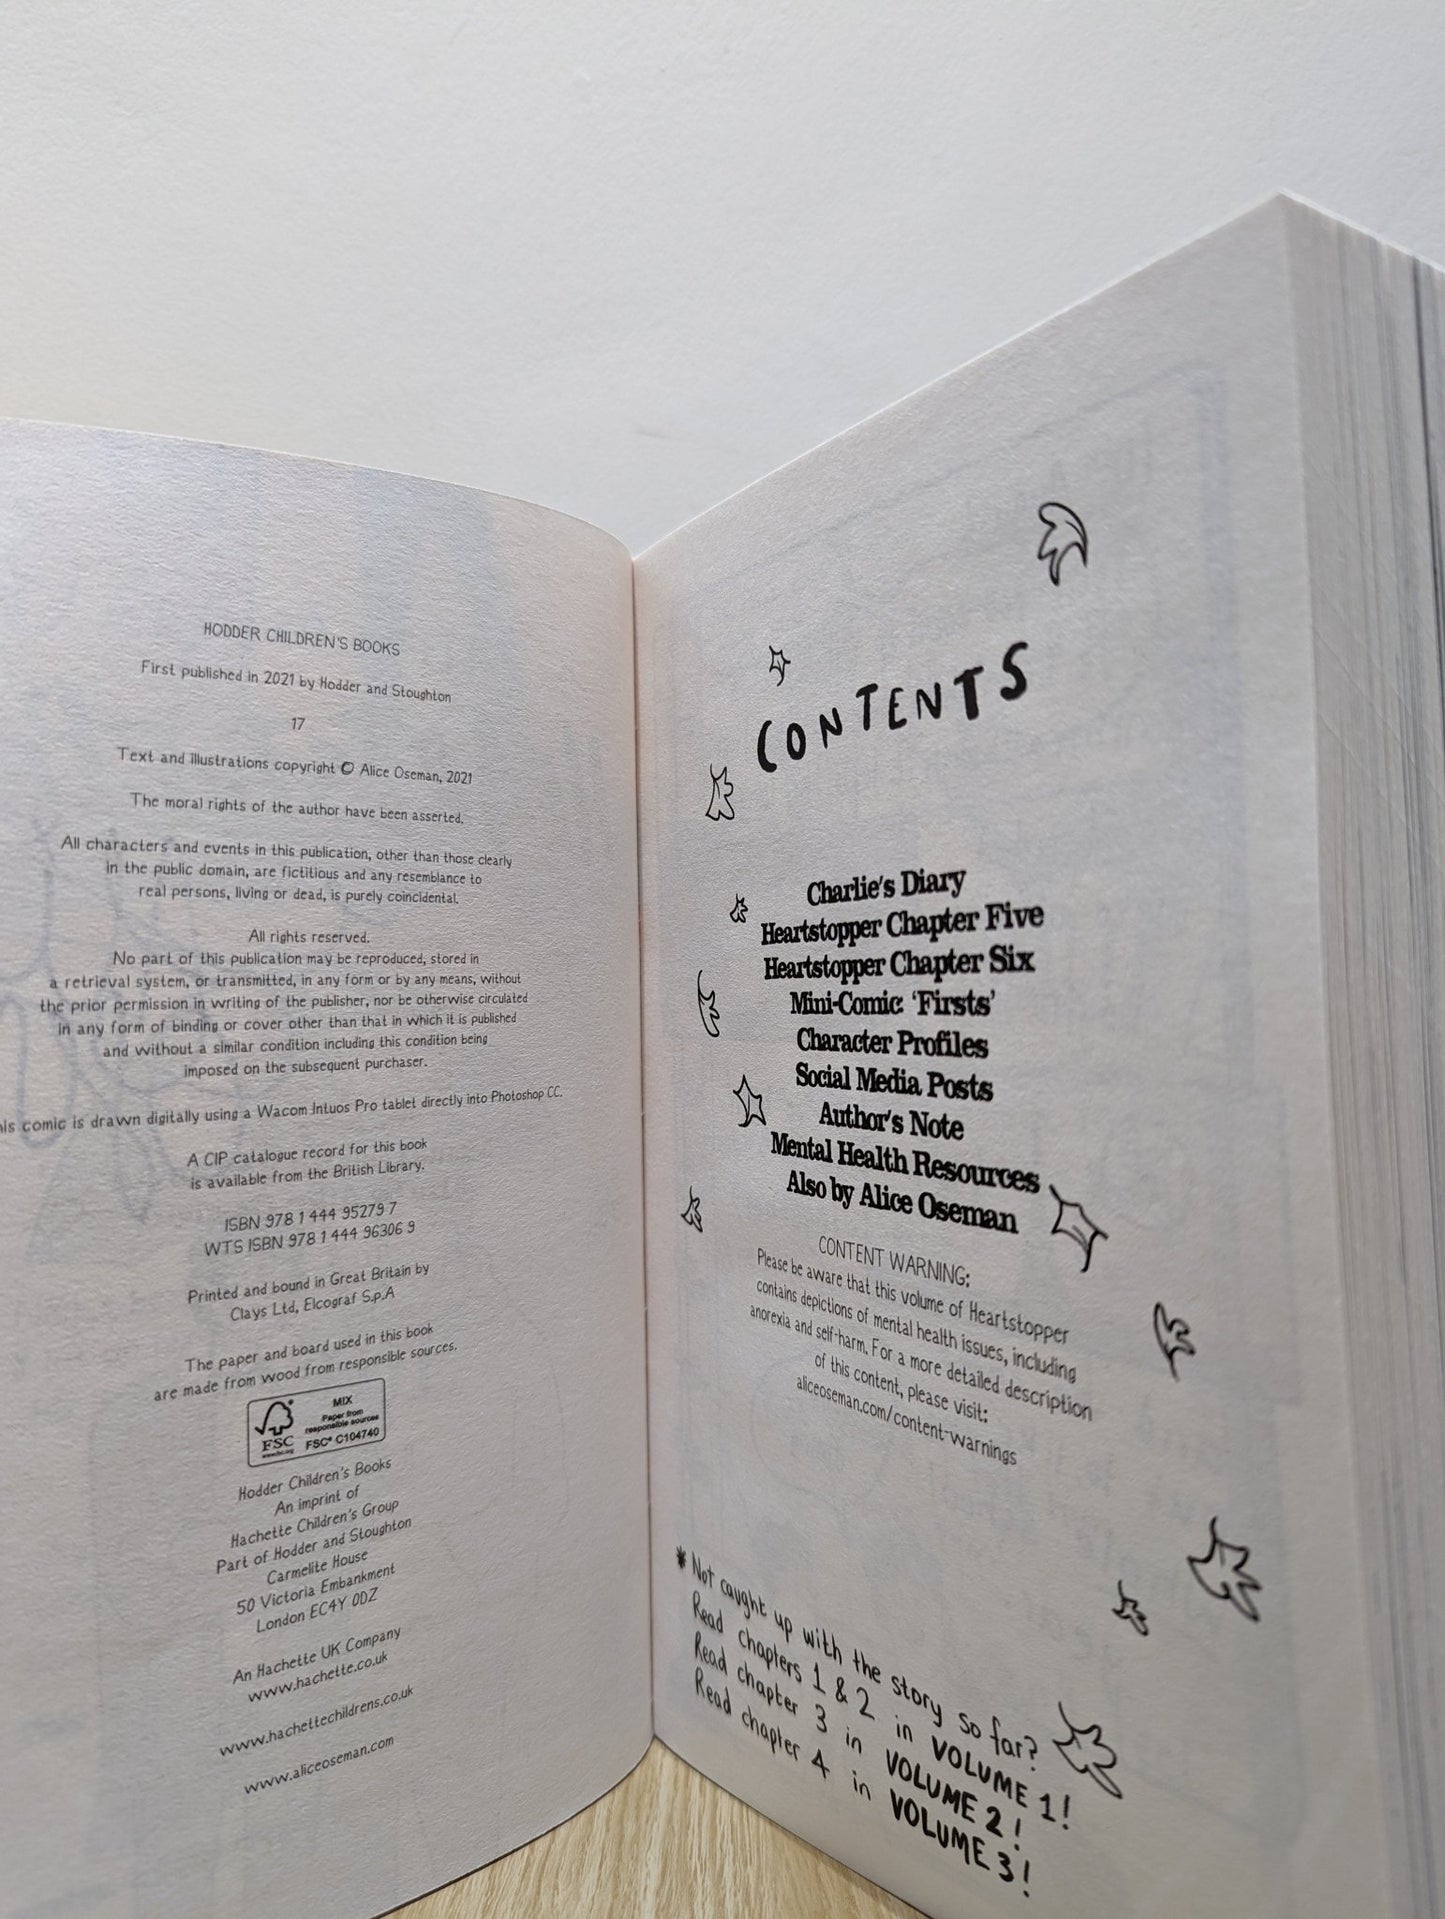 HODDER CHILDREN'S BOOKS
First published in 2021 by Hodder and Stoughton
17
Text and illustrations copyright © Alice Oseman, 2021
The moral rights of the author have been asserted.
All characters and events in this publication, other than those clearly
in the public domain, are fictitious and any resemblance to
real persons, living or dead, is purely coincidental.
All rights reserved.
No part of this publication may be reproduced, stored in
a retrieval system, or transmitted, in any form or by any means, without
the prior permission in writing of the publisher, nor be otherwise circulated
in any form of binding or cover other than that in which it is published
and without a similar condition including this condition being
imposed on the subsequent purchaser.
is comic is drawn digitally using a Wacom Intuos Pro tablet directly into Photoshop CC.
A CIP catalogue record for this book
is available from the British Library.
ISBN 978 1 444 95279 7
WTS ISBN 978 1 444 96306 9
Printed and bound in Great Britain by
Clays Ltd, Elcograf S.p.A
The paper and board used in this book
are made from wood from responsible sources.
MIX
Paper from
responsible sources
FSC
www.fsc.org
FSC® C104740
Hodder Children's Books
An imprint of
Hachette Children's Group
Part of Hodder and Stoughton
Carmelite House
50 Victoria Embankment
London EC4Y 0DZ
An Hachette UK Company
www.hachette.co.uk
www.hachettechildrens.co.uk
www.aliceoseman.com
CONTENTS
Charlie's Diary
Heartstopper Chapter Five
Heartstopper Chapter Six
Mini-Comic: 'Firsts'
Character Profiles
Social Media Posts
Author's Note
Mental Health Resources
Also by Alice Oseman
CONTENT WARNING:
Please be aware that this volume of Heartstopper
contains depictions of mental health issues, including
anorexia and self-harm. For a more detailed description
of this content, please visit:
aliceoseman.com/content-warnings
* Not caught up with the story so far?
Read chapters 1 & 2 in VOLUME 1!
Read chapter 3 in VOLUME 2!
Read chapter 4 in VOLUME 3!